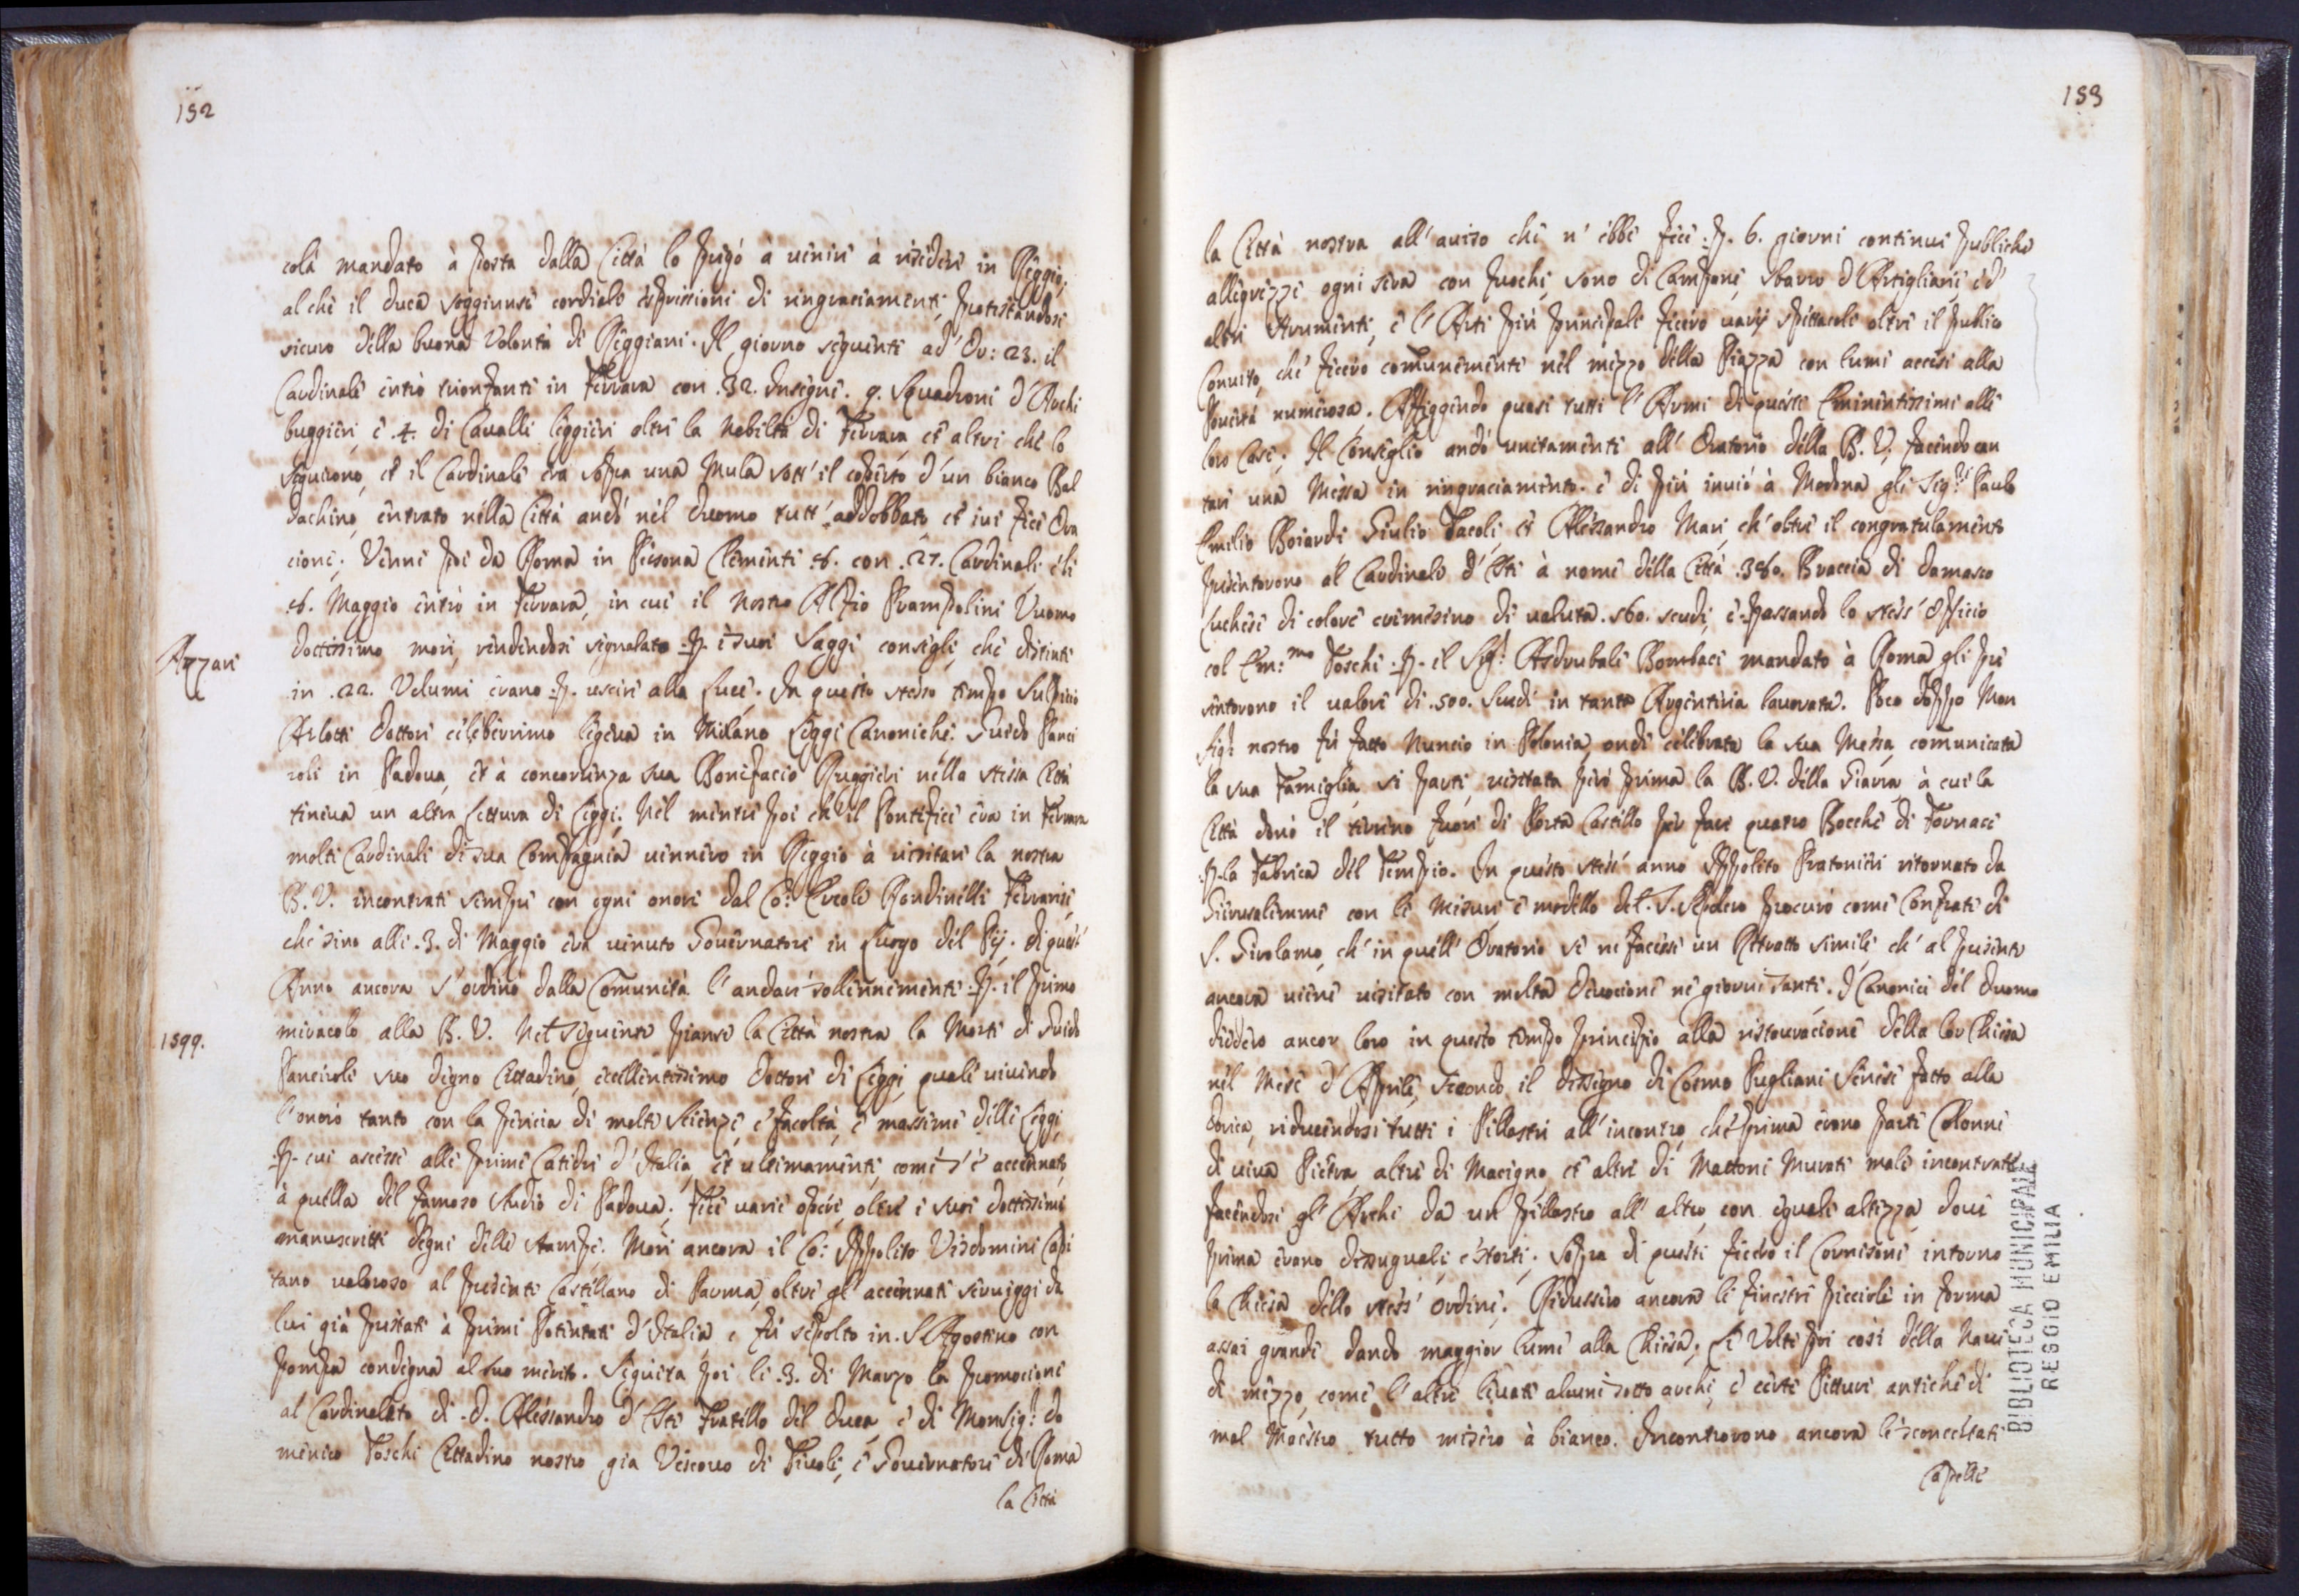 152
colà mandato à posta dalla Città lo pregó à venire à risedere in Reggio,
al chè il Duca soggiunse cordiale espressioni di ringraciamenti, protestandosi
sicuro della buona Volontà di Reggiani. Il giorno seguente ad' Or: 23. il
Cardinale entrò trionfante in Ferrara con .32. Insegne. 9. Squadroni d'Archi
buggieri è .4. di Cavalli leggieri oltre la Nobiltà di Ferrara et altri chè lo
seguirono, et il Cardinale era sopra una Mula sott' il coperto d'un bianco Bal
dachino, entrato nella Città andó nel Duomo tutt' addobbato, et ivi fece Ora
cione. Venne poi da Roma in Persona Clemente .8. con .27. Cardinali è li
.8. Maggio entrò in Ferrara, in cui il Nostro Alfio Prampolini Uuomo
Azzari
dottissimo morì, rendendosi signalato .p. i suoi Saggi consigli, chè distinti
in .22. Volumi erano .p. uscire alla Luce. In questo stesso tempo Sulpicio
Arlotti Dottore celeberrimo legeva in Milano Leggi Canoniche. Guido Panci
roli in Padova, et à concorrenza sua Bonifacio Ruggieri nella stessa Città
teneva un altra Lettura di Leggi. Nel mentre poi ch' il Pontefice era in Ferrara
molti Cardinali di sua Compagnia vennero in Reggio à visitare la nostra
B. V. incontrati sempre con ogni onore dal Co: Ercole Rondinelli Ferrarese,
chè sino alli .3. di Maggio era venuto Governatore in Luogo del Pij. di quest'
Anno ancora s' ordinò dalla Comunità l'andare sollennemente .p. il primo
miracolo alla B. V. Nel seguente pianse la Città nostra la Morte di Guido
1599.
Panciroli suo degno Cittadino, eccellentissimo Dottore di Leggi, quale vivendo
l'onorò tanto con la pericia di molte Scienze, è facoltà, è massime delle Leggi,
.p. cui ascese alle prime Catedre d'Italia, et ultimamente, come s'è accennato,
à quella del famoso studio di Padova. Fece varie opere, oltre i suoi dottissimi
manuscritti degni delle stampe. Morì ancora il Co: Ippolito Visdomini Capi
tano valoroso al presente Castellano di Parma, oltre gl' accennati serviggi da
lui già prestati à primi Potentati d'Italia, e fù sepolto in .S. Agostino con
pompa condegna al suo merito. Seguita poi li .3. di Marzo la promocione
al Cardinalato di .D. Alessandro d'Este Fratello del Duca, è di Monsig.r Do
menico Toschi Cittadino nostro gia Vescovo di Tivoli, è Governatore di Roma
la Città
153
la Città nostra all' aviso chè n' ebbe fece .p. 6. giorni continui publiche
allegrezze ogni sera con fuochi, sono di Campane, sbarro d'Artigliarie, èd'
altri strumenti, è l'Arti più principali ficero varij spettacoli oltre il publico
Convito, chè ficero comunemente nel mezzo della Piazza con lumi accesi alla
Povertà numerosa. Affiggendo quasi tutti l'Armi di questi Eminentissimi alle
loro Case. Il Consiglio andò unitamente all' Oratorio della B. V. facendo can
tare una Messa in ringraciamento. è di più inviò à Modona gli Sig.ri Paulo
Emilio Boiardi Giulio Tacoli, et Alessandro Mari, ch' oltre il congratulamento
presentorono al Cardinale d'Este à nome della Città .380. Braccia di Damasco
Luchese di colore cremesino di valuta .560. scudi, è passando lo stess' Officio
col Em:mo Toschi .p. il Sig.r Asdrubale Bombaci mandato à Roma gli pre
sentorono il valore di .500. Scudi in tanta Argenteria lavorata. Poco doppo Mon
Sig.r nostro fù fatto Nuncio in Polonia, onde celebrata la sua Messa, comunicata
la sua Famiglia, si partì, visitata però prima la B. V. della Giarra, à cui la
Città donò il terreno fuori di Porta Castello per fare quatro Bocche di Fornace
.p. la Fabrica del Tempio. In questo stess' anno Ippolito Pratonieri ritornato da
Gierusalemme con le Misure è modello del .S. Sepolcro procurò come Confrate di
S. Girolamo, ch' in quell' Oratorio se ne facesse un Ritratto simile, ch' al presente
ancora viene visitato con molta Divocione nè giorni santi. I Canonici del Duomo
diedero ancor loro in questo tempo principio alla ristoracione della lor Chiesa
nel Mese d'Aprile, secondo il dissegno di Cosmo Pugliani Senese fatto alla
Dorica, riducendosi tutti i Pillastri all' incontro, chè prima erono parte Colonne
di viva Pietra, altre di Macigno et altre di Mattoni Murati male incontrate
facendosi gl'Archi da un pillastro all' altro, con eguale altezza, dove
prima erono dissuguali, è storti. Sopra di questi ficero il Cornisone intorno
la Chiesa dello stess' ordine. Ridussero ancora le finestre picciole in forma
assai grande dando maggior lume alla Chiesa, Le Volte poi così della Nave
di mezzo, come l'altre levati alcuni sotto archi, è certe Pitture antiche di
mal Maestro tutto misero à bianco. Incontrorono ancora le sconcertate
Capelle
BIBLIOTECA MUNICIPALE
REGGIO EMILIA